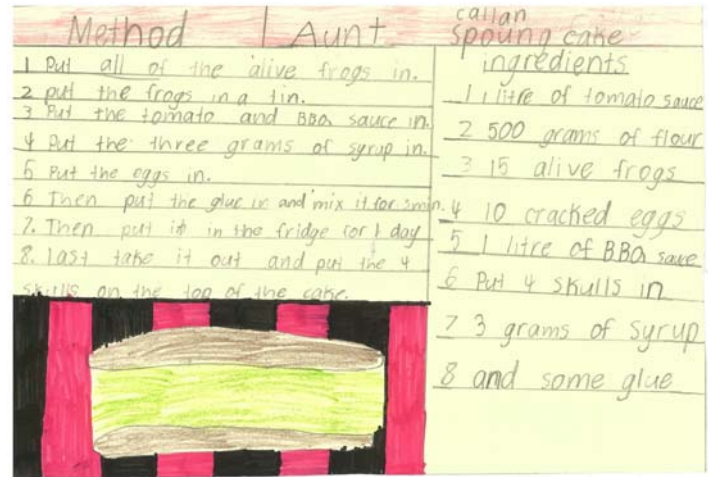 Method
1 Put all of the alive frogs in.
2 put the frogs in a tin.
3 Put the tomato and BBQ sauce in.
4 Put the three grams of syrup in.
5 Put the eggs in.
6 Then put the glue in and mix it for 5min.
7. Then put it in the fridge for 1 day
8. last take it out and put the 4
skulls on the top of the cake.
Aunt callan
spoung cake
ingredients
1 1 litre of tomato sauce
2 500 grams of flour
3 15 alive frogs
4 10 cracked eggs
5 1 litre of BBQ sauce
6 Put 4 skulls in
7 3 grams of syrup
8 and some glue